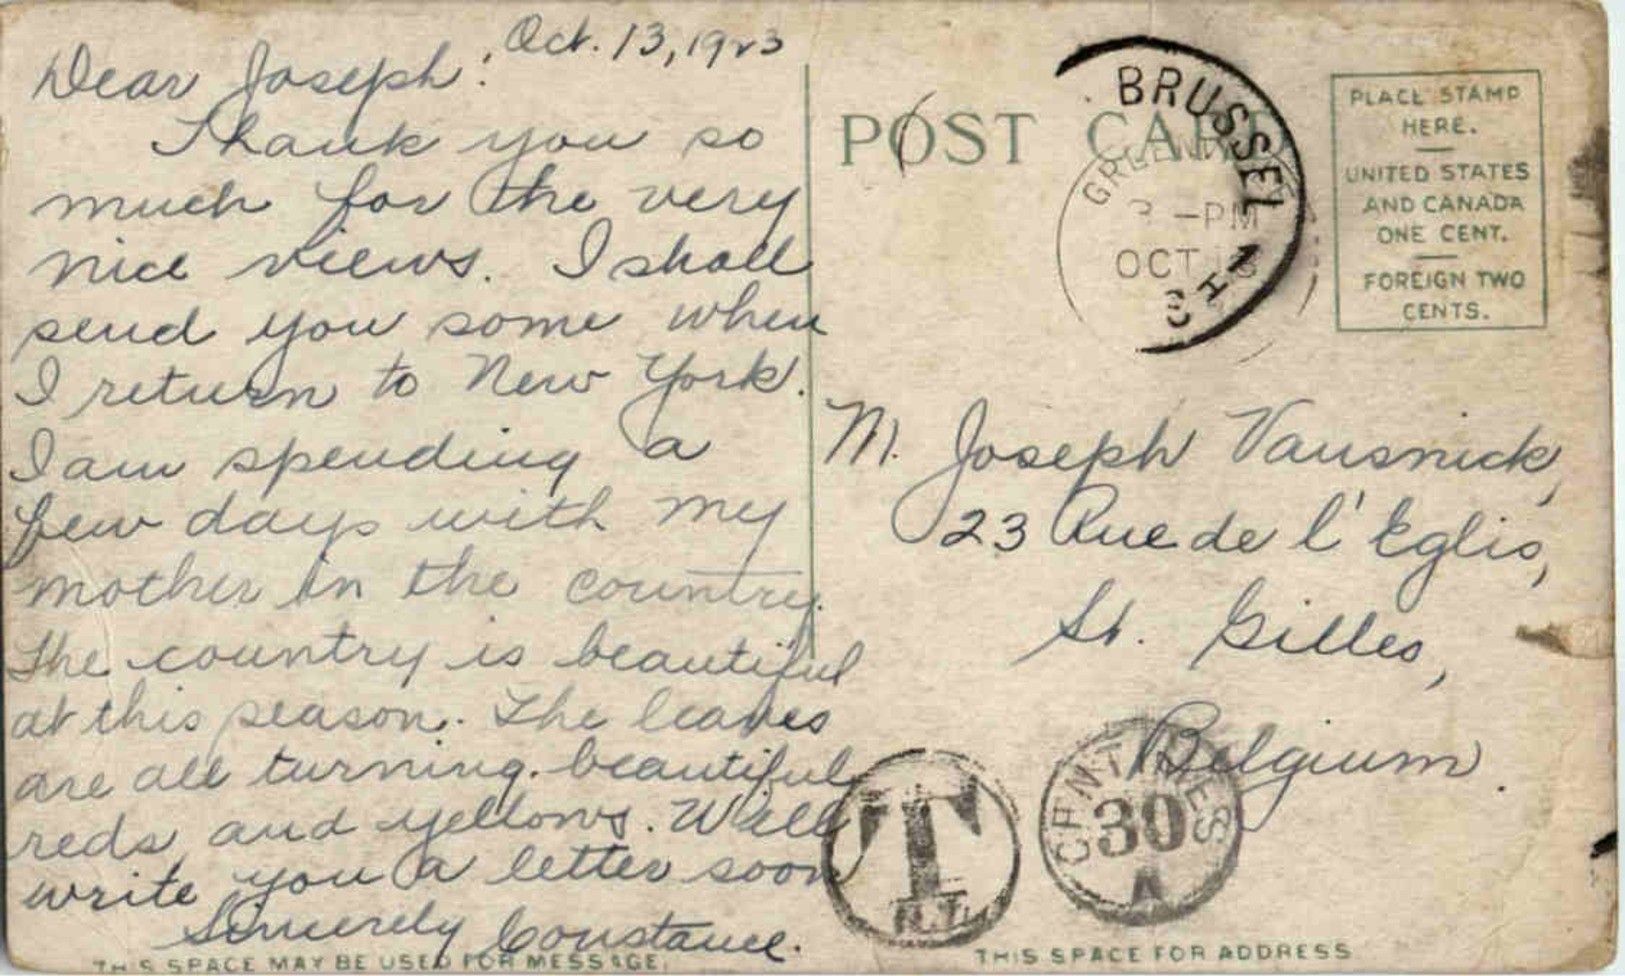 Oct. 13, 1923
Dear Joseph:
Thank you so
much for the very
nice views. I shall
send you some when
I return to New York.
I am spending a
few days with my
mother in the country.
The country is beautiful
at this season. The leaves
are all turning beautiful
reds and yellows. Will
write you a letter soon
Sincerely Constance.
THIS SPACE MAY BE USED FOR MESSAGE.
POST CARD
BRUSSEL
3 -PM
OCT
PLACE STAMP
HERE.
UNITED STATES
AND CANADA
ONE CENT.
FOREIGN TWO
CENTS.
M. Joseph Vausnick,
23 Rue de l'Eglis,
St. Gilles,
Belgium.
T
CENTIMES
30
A
THIS SPACE FOR ADDRESS